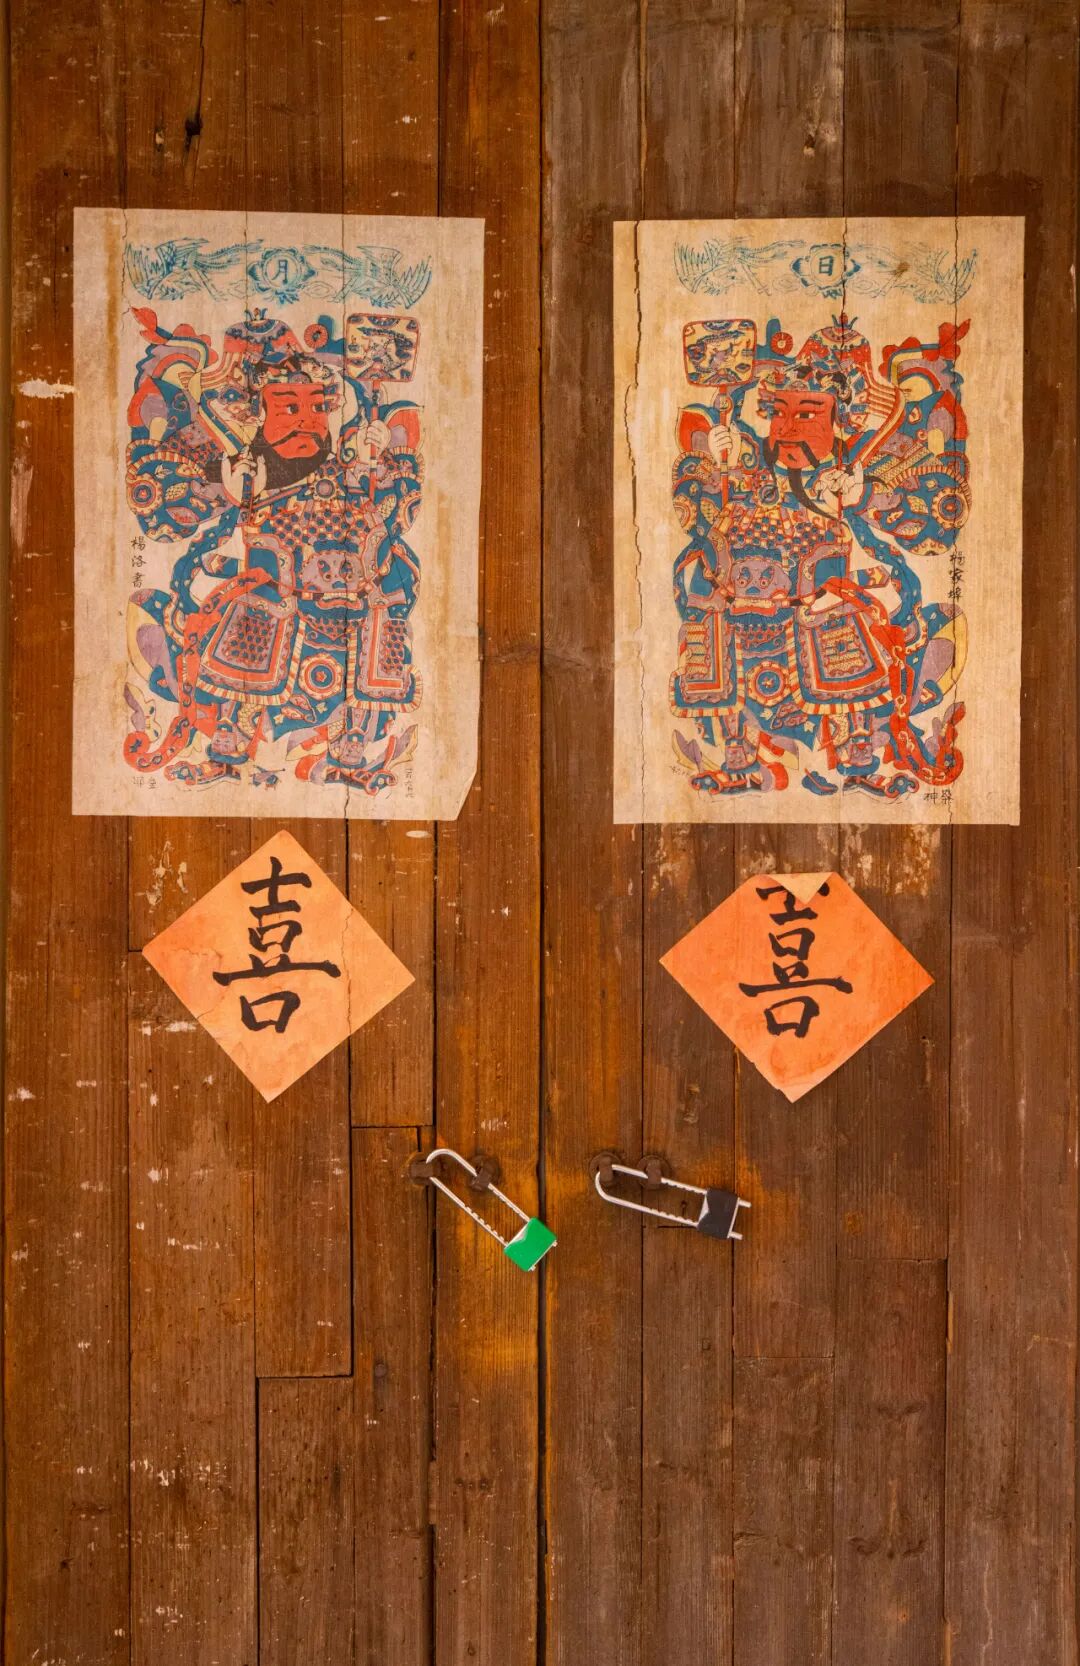 月
日
楊洛書
楊家埠
神
喜
喜